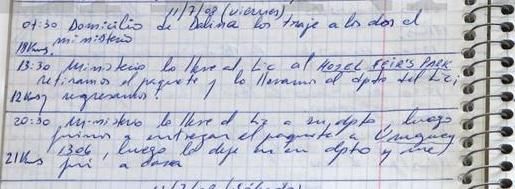 11/7/08 (viernes)
07:30 Domicilio de Dalina los traje a los dos al
ministerio
18Kms.
13:30 Ministerio lo lleve al Lic al HOTEL FEIR'S PARK
retiramos el paquete y lo llevamos al dpto del Lic,
12Kms y regresamos.
20:30, Ministerio lo lleve al Lic a su dpto luego
fuimos a entregar el paquete a Uruguay
21Kms 1306, luego lo deje en su dpto y me
fui a casa